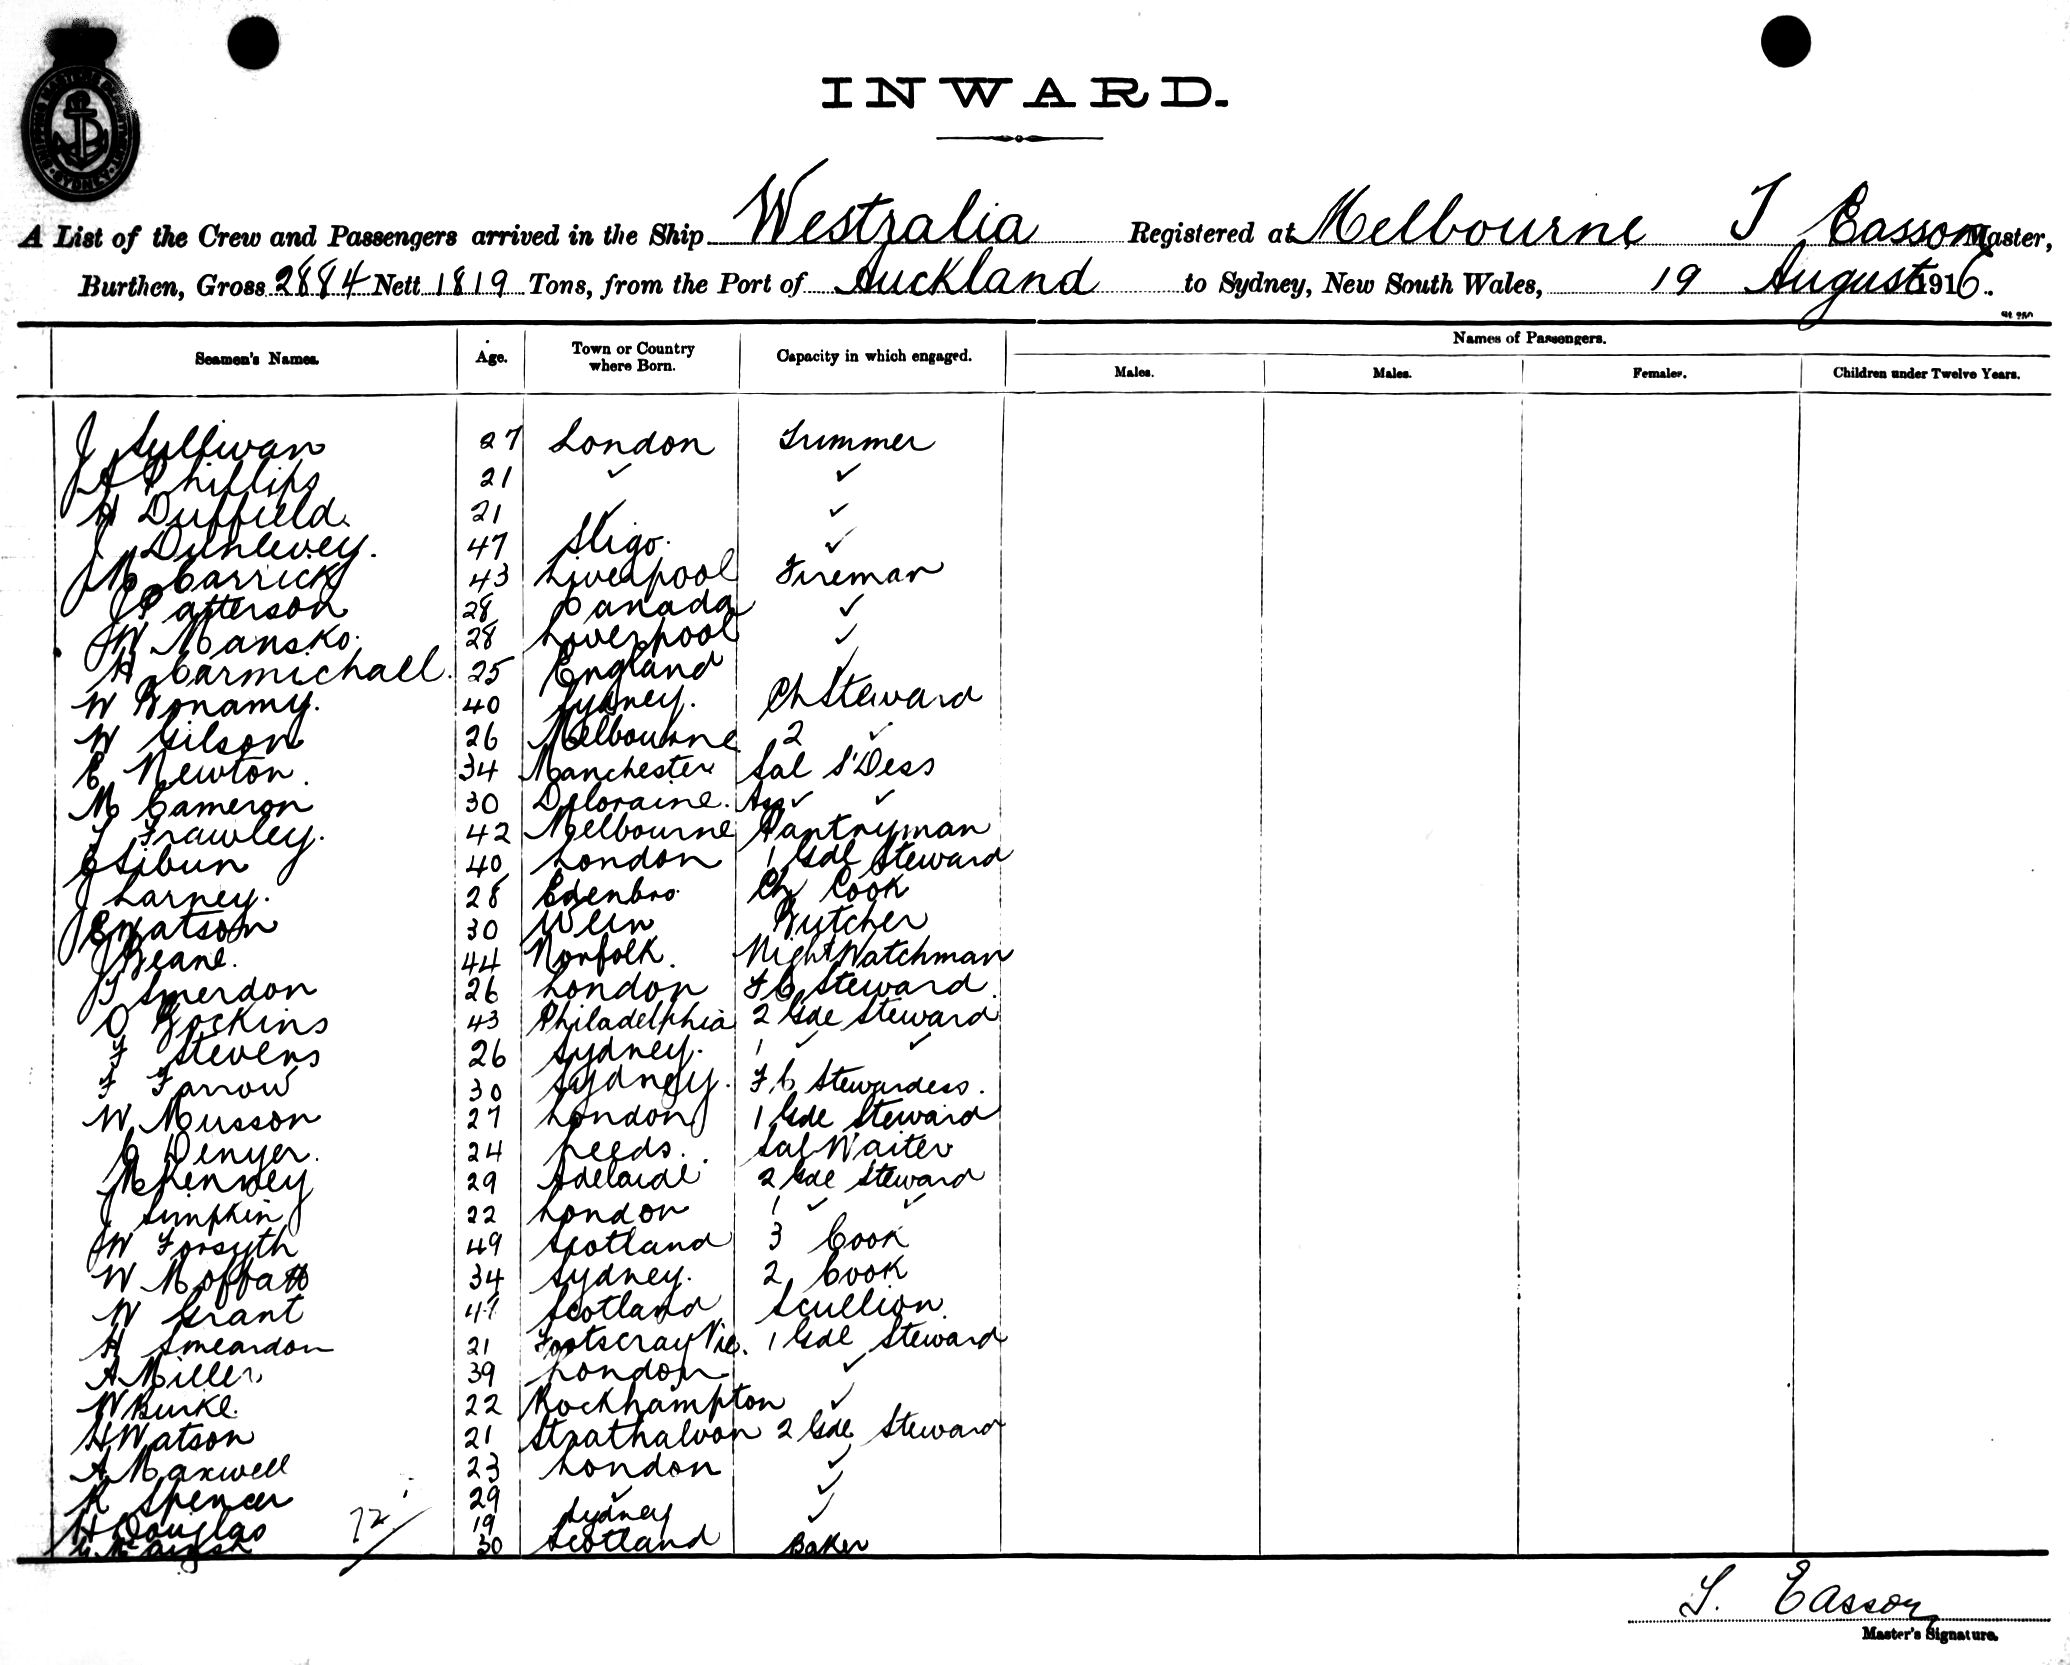 SHIPPING MASTERS DEPARTMENT SYDNEY
INWARD.
A List of the Crew and Passengers arrived in the Ship Westralia Registered at Melbourne T Easson Master,
Burthen, Gross 2884 Nett 1819 Tons, from the Port of Auckland to Sydney, New South Wales, 19 August 1916.
Names of Passengers.
Seamen's Names. Age. Town or Country where Born. Capacity in which engaged. Males. Males. Females. Children under Twelve Years.
J Sullivan 27 London Trimmer
J A Phillips 21 ✓ ✓
H Duffield 21 ✓ ✓
J Dunlevey. 47 Sligo. ✓
J McCarrick 43 Liverpool Fireman
J Patterson 28 Canada ✓
J W Mansko. 28 Liverpool ✓
H Carmichall. 25 England ✓
W Bonamy. 40 Sydney. Ch Steward
W Gilson 26 Melbourne 2 ✓
E Newton. 34 Manchester Sal S'Dess
M Cameron 30 Deloraine. Ass ✓ ✓
T Frawley. 42 Melbourne Pantryman
C Sibun 40 London 1 Gde Steward
J Larney. 28 Edenbro Ch Cook
J E Watson 30 Butcher
J Beane. 44 Norfolk. Night Watchman
J T Smerdon 26 London F C Steward.
O Bockins 43 Philadelphia 2 Gde Steward
F Stevens 26 Sydney. 1 ✓ ✓
F Farrow 30 Sydney. F C Stewardess.
W Musson 27 London 1 Gde Steward
C Denyer. 24 Leeds. Sal Waiter
M Kenney 29 Adelaide 2 Gde Steward
J Simpkin 22 London 1 ✓ ✓
J W Forsyth 49 Scotland 3 Cook
W Moffatt 34 Sydney. 2 Cook
W Grant 47 Scotland Scullion
H Smeardon 21 Footscray Vic. 1 Gde Steward
A Miller 39 London ✓
W Burke. 22 Rockhampton ✓
H Watson 21 Strathalvon 2 Gde Steward
A Maxwell 23 London ✓
R Spencer 29 ✓ ✓
H Douglas 19 Sydney ✓
30 Scotland Baker
72
T. Easson
Master's Signature.